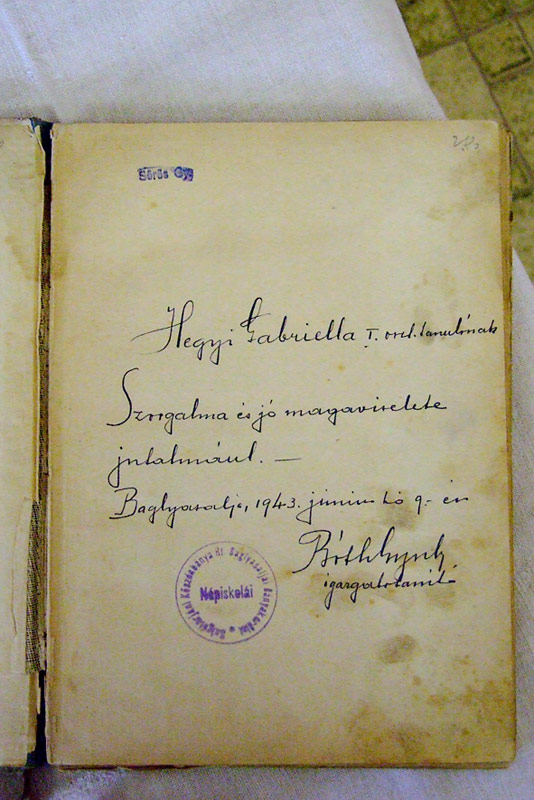 Sőrös Gy.
Hegyi Gabriella I. oszt. tanulónak
Szorgalma és jó magaviselete
jutalmául. —
Baglyasalja, 1943. június hó 9.-én
igazgatótanító
Népiskolái